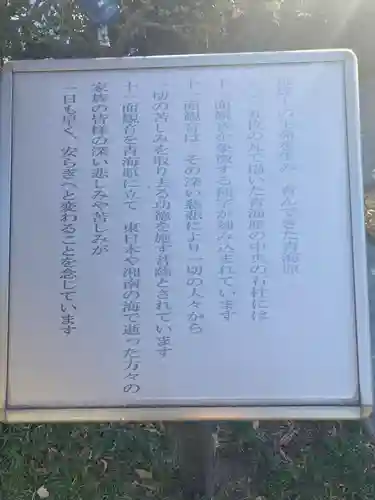 生み 育んできた青海原
五色の瓦で描いた青海原の中央の石柱には
十一面観音を象徴する種子が刻み込まれています
十一面観音は その深い慈悲により一切の人々から
一切の苦しみを取り去る功徳を施す菩薩とされています
十一面観音を青海原に立て 東日本や湘南の海で逝った方々の
家族の皆様の深い悲しみや苦しみが
一日も早く、安らぎへと変わることを念じています